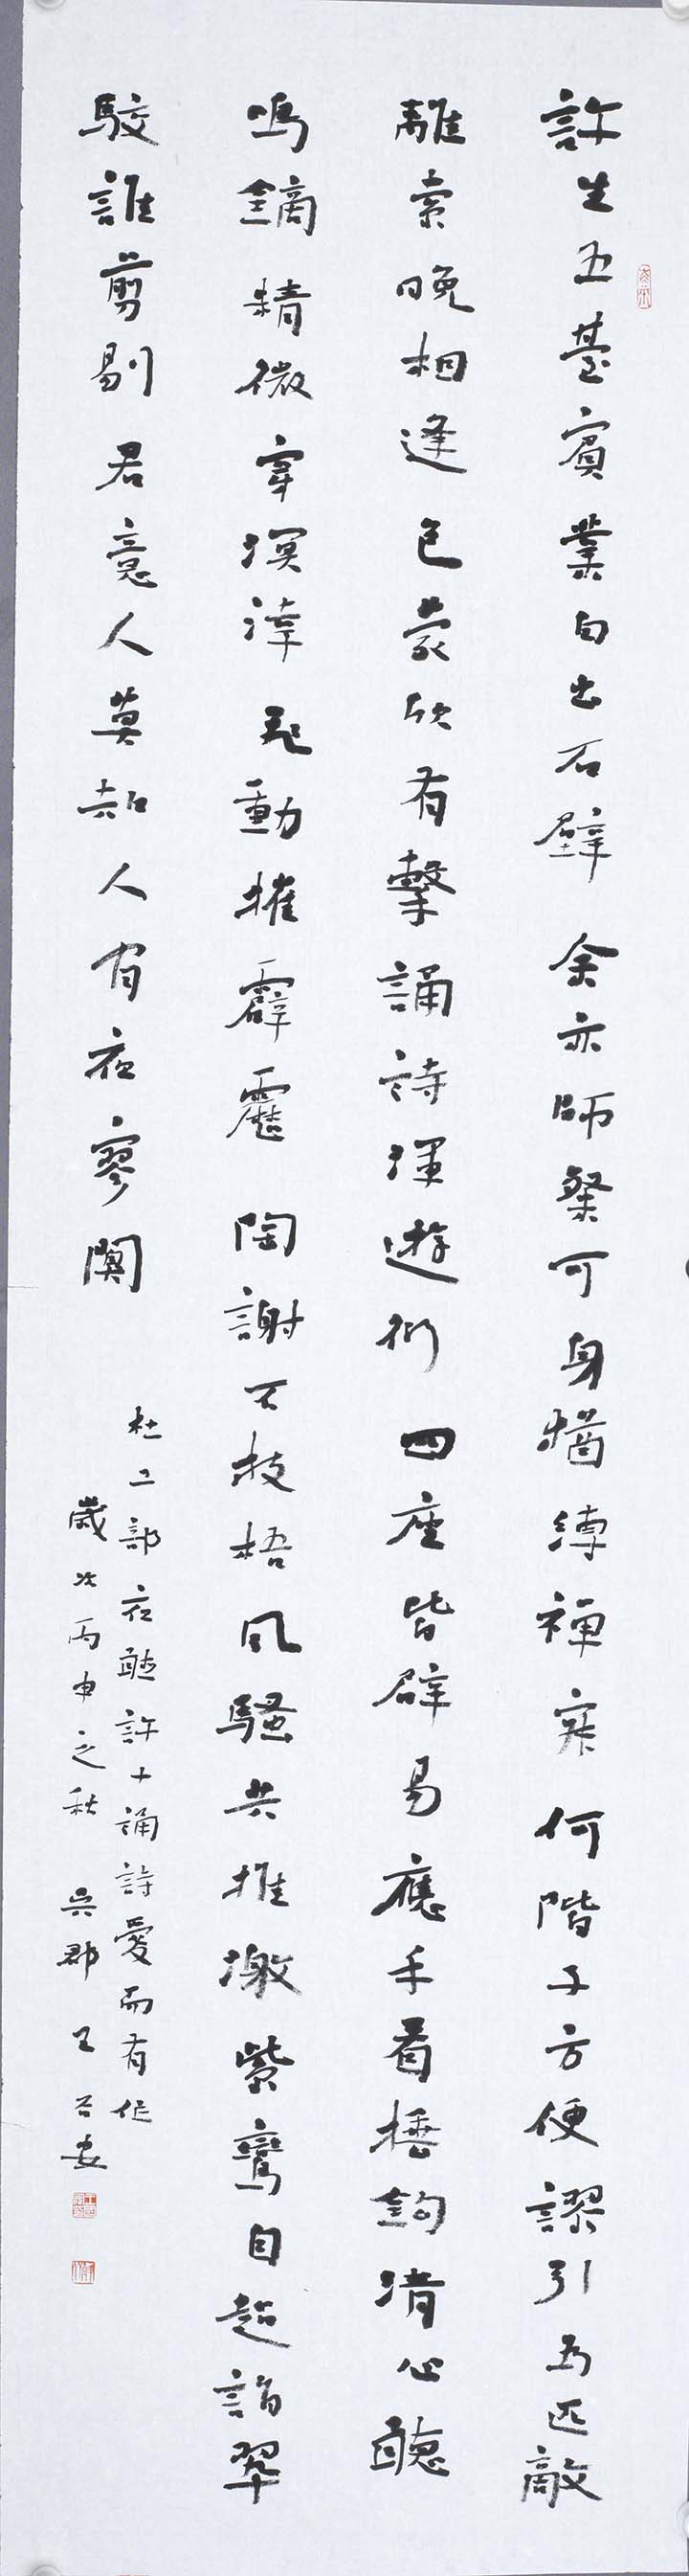 許生五臺賓業白出石壁余亦師粲可身猶縛禪寂何階子方便謬引為匹敵
離索晚相逢包蒙欣有擊誦詩渾遊衍四座皆辟易應手看捶鉤清心聽
鳴鏑精微穿溟涬飛動摧霹靂陶謝不枝梧風騷共推激紫鸞自超詣翠
駮誰剪剔君意人莫知人間夜寥闃
杜工部夜聽許十誦詩愛而有作
歲次丙申之秋 吳郡 王